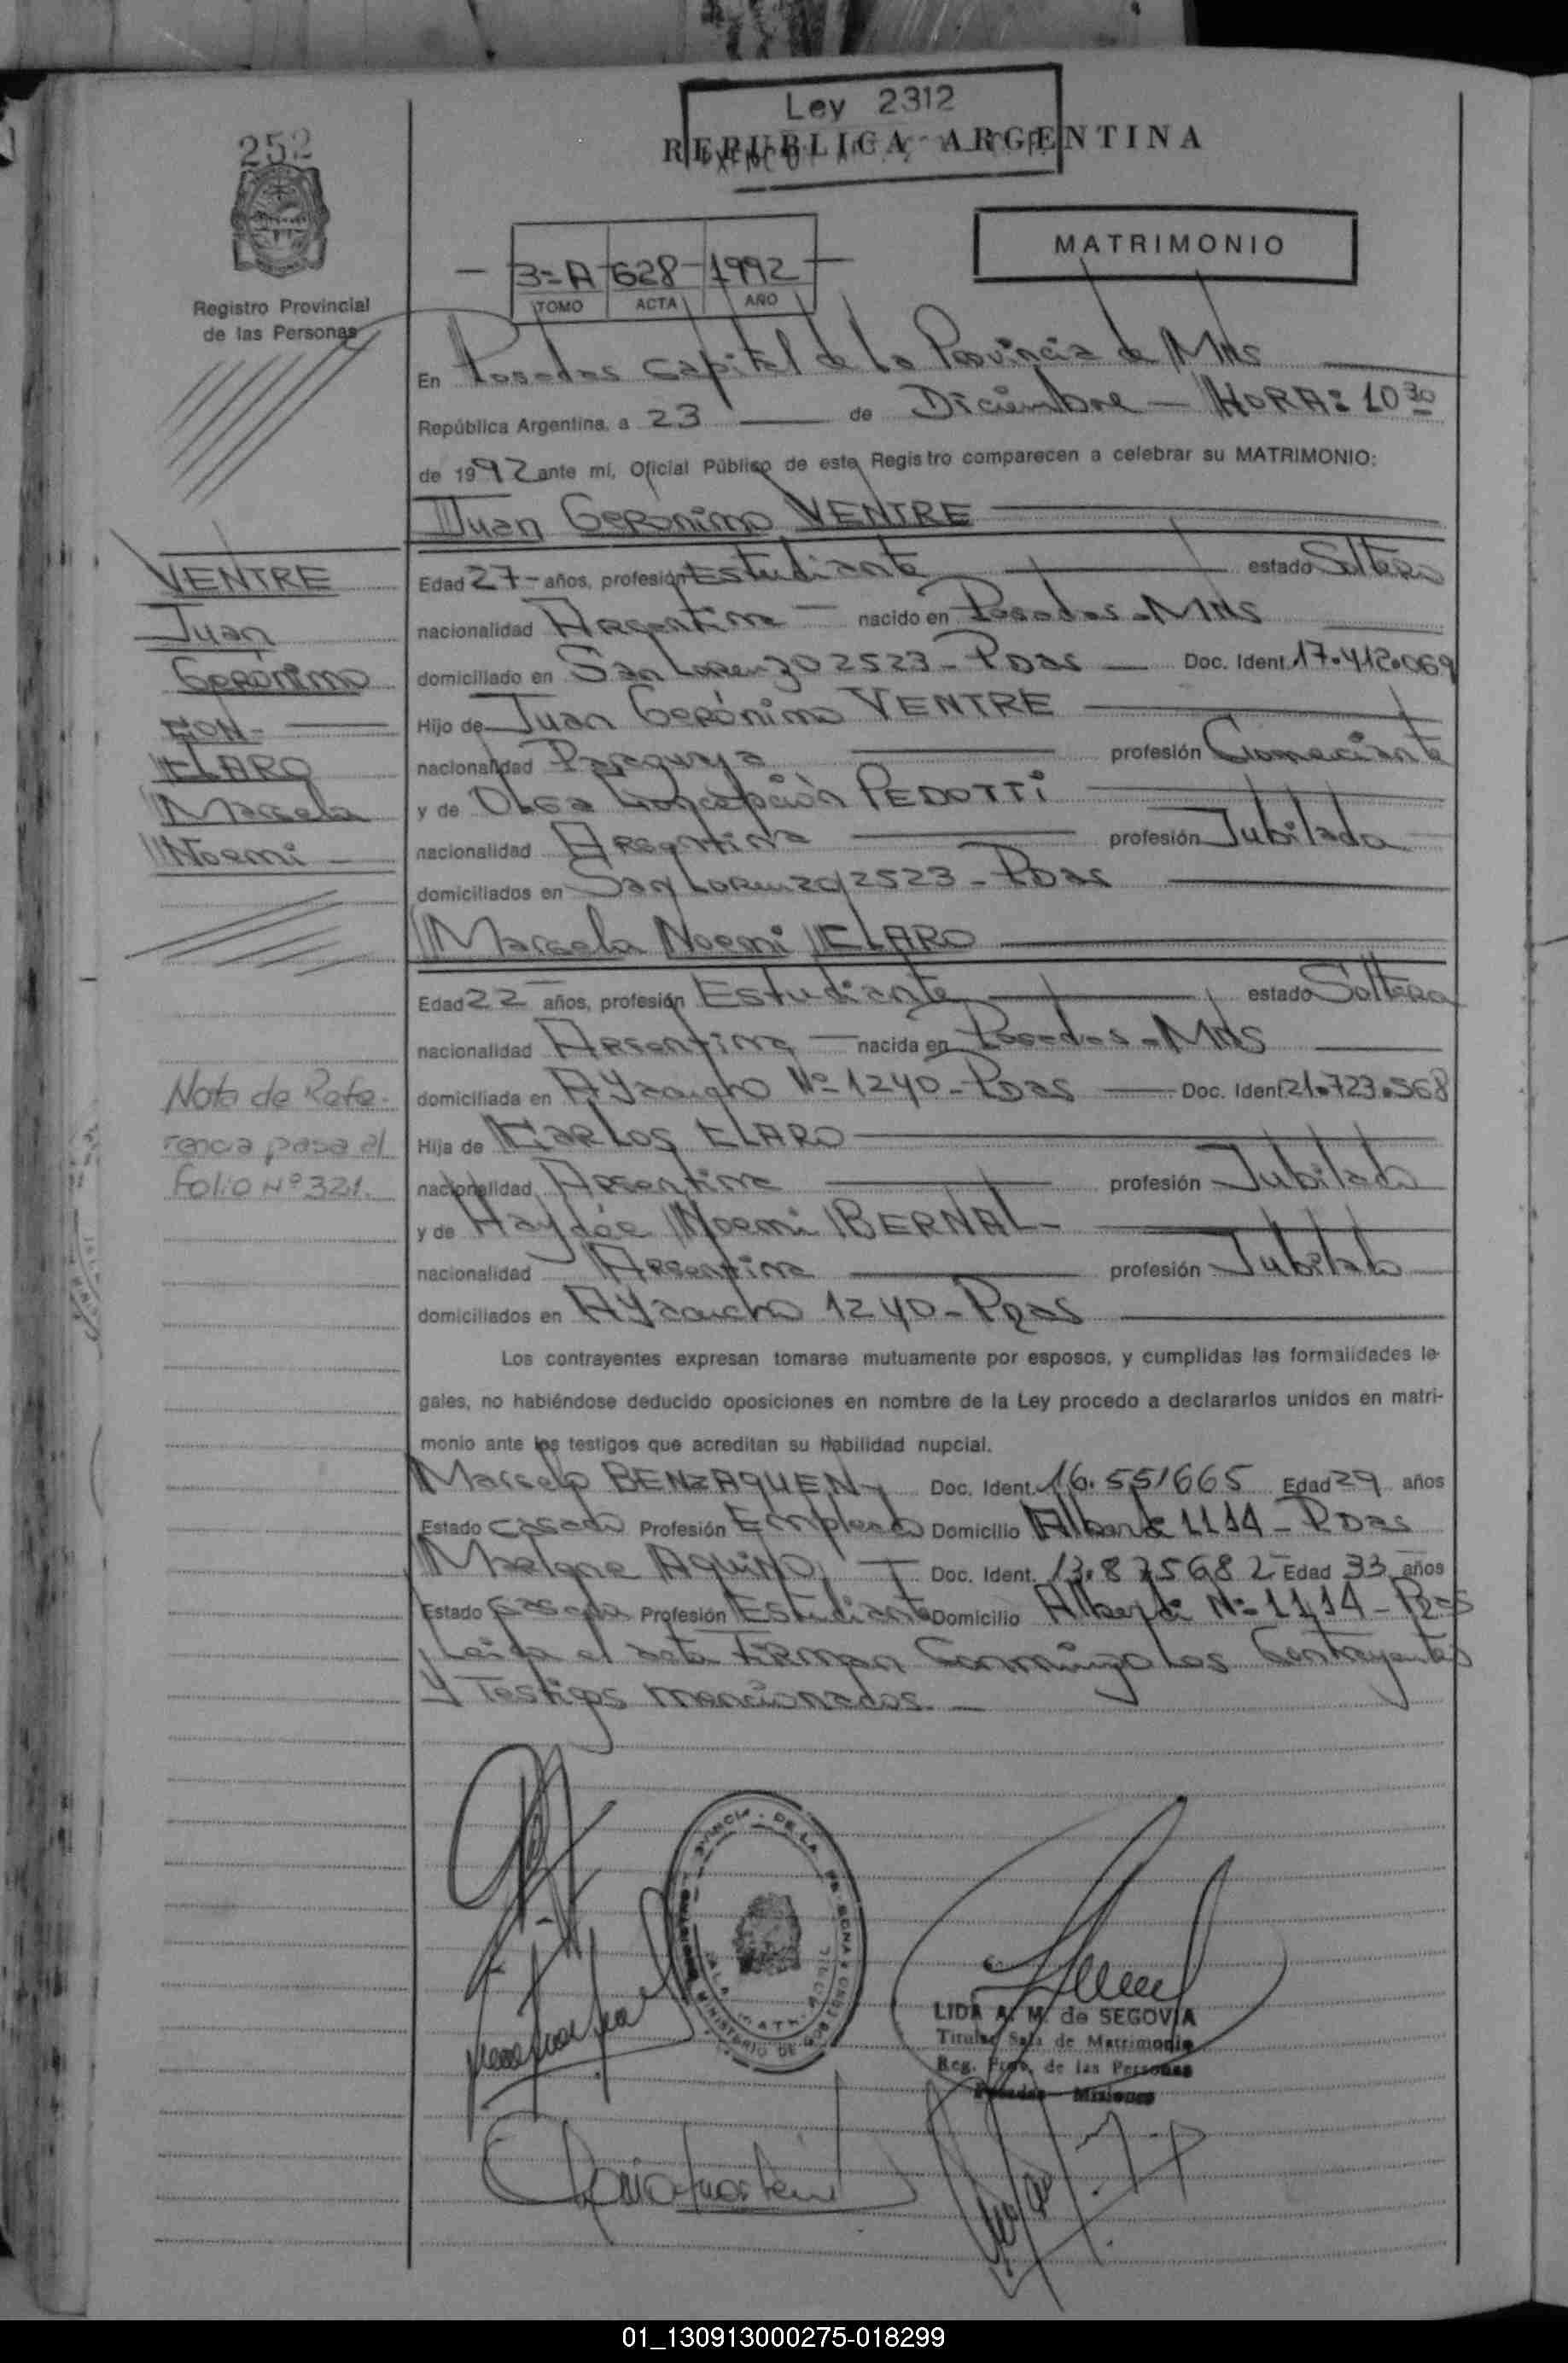 252
Ley 2312
REPUBLICA ARGENTINA
MATRIMONIO
3=A 628 1992
TOMO ACTA AÑO
Registro Provincial
de las Personas
En Posadas Capital de la Provincia de Mnes
República Argentina, a 23 de Diciembre - HORA: 10 30
de 1992 ante mí, Oficial Público de este Registro comparecen a celebrar su MATRIMONIO:
Juan Gerónimo VENTRE
VENTRE
Juan
Gerónimo
CON-
CLARO
Marcela
Noemi
Edad 27 años, profesión Estudiante estado Soltero
nacionalidad Argentina nacido en Posadas - Mnes
domiciliado en San Lorenzo 2523 - Pdas Doc. Ident. 17.412.069
Hijo de Juan Gerónimo VENTRE
nacionalidad Paraguaya profesión Comerciante
y de Olga Concepción PEDOTTI
nacionalidad Argentina profesión Jubilada
domiciliados en San Lorenzo 2523 - Pdas
Marcela Noemi CLARO
Edad 22 años, profesión Estudiante estado Soltera
nacionalidad Argentina nacida en Posadas - Mnes
domiciliada en Ayacucho Nº 1240 - Pdas Doc. Ident. 21.723.568
Hija de Carlos CLARO
nacionalidad Argentina profesión Jubilado
y de Haydée Noemi BERNAL -
nacionalidad Argentina profesión Jubilada
domiciliados en Ayacucho 1240 - Pdas
Nota de Refe-
rencia pasa al
folio Nº 321.
Los contrayentes expresan tomarse mutuamente por esposos, y cumplidas las formalidades le-
gales, no habiéndose deducido oposiciones en nombre de la Ley procedo a declararlos unidos en matri-
monio ante los testigos que acreditan su habilidad nupcial.
Marcelo BENZAQUEN Doc. Ident. 16.551665 Edad 29 años
Estado casado Profesión Empleado Domicilio Alberdi 1114 - Pdas
Marlene AQUINO Doc. Ident. 13.875682 Edad 33 años
Estado casada Profesión Estudiante Domicilio Alberdi Nº 1114 - Pdas
Leída el acta firman conmigo los contrayentes
y testigos mencionados.
LIDA A. M. de SEGOVIA
Titular Sala de Matrimonio
Reg. Prov. de las Personas
Posadas - Misiones
01_130913000275-018299